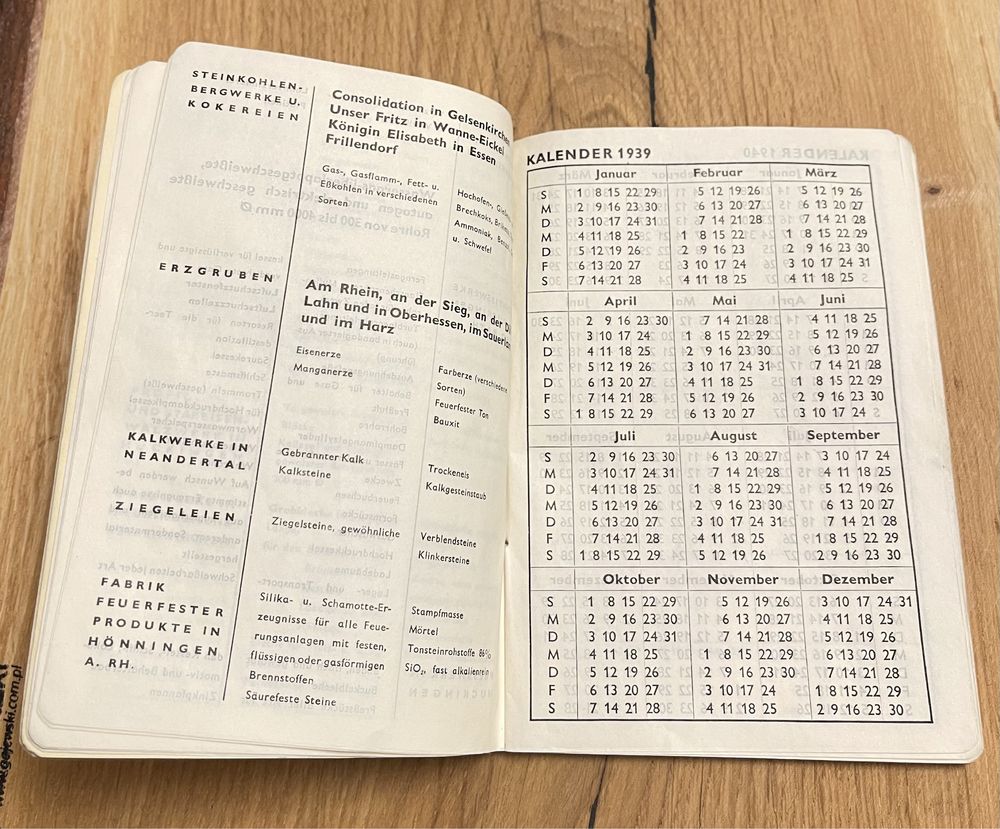 STEINKOHLEN-
BERGWERKE U.
KOKEREIEN
Consolidation in Gelsenkirchen
Unser Fritz in Wanne-Eickel
Königin Elisabeth in Essen
Frillendorf
Gas-, Gasflamm-, Fett- u.
Eßkohlen in verschiedenen
Sorten
Hochofen-,
Brechkoks,
Ammoniak,
u. Schwefel
ERZGRUBEN
Am Rhein, an der Sieg, an der
Lahn und in Oberhessen, im
und im Harz
Eisenerze
Manganerze
Farberze (verschiedene
Sorten)
Feuerfester Ton
Bauxit
KALKWERKE IN
NEANDERTAL
Gebrannter Kalk
Kalksteine
Trockeneis
Kalkgesteinstaub
ZIEGELEIEN
Ziegelsteine, gewöhnliche
Verblendsteine
Klinkersteine
FABRIK
FEUERFESTER
PRODUKTE IN
HÖNNINGEN
A. RH.
Silika- u. Schamotte-Er-
zeugnisse für alle Feue-
rungsanlagen mit festen,
flüssigen oder gasförmigen
Brennstoffen
Säurefeste Steine
Stampfmasse
Mörtel
Tonsteinrohstoffe 86%
SiO₂, fast alkalienrein
KALENDER 1939
Januar Februar März
S 1 8 15 22 29 5 12 19 26 5 12 19 26
M 2 9 16 23 30 6 13 20 27 6 13 20 27
D 3 10 17 24 31 7 14 21 28 7 14 21 28
M 4 11 18 25 1 8 15 22 1 8 15 22 29
D 5 12 19 26 2 9 16 23 2 9 16 23 30
F 6 13 20 27 3 10 17 24 3 10 17 24 31
S 7 14 21 28 4 11 18 25 4 11 18 25
April Mai Juni
S 2 9 16 23 30 7 14 21 28 4 11 18 25
M 3 10 17 24 1 8 15 22 29 5 12 19 26
D 4 11 18 25 2 9 16 23 30 6 13 20 27
M 5 12 19 26 3 10 17 24 31 7 14 21 28
D 6 13 20 27 4 11 18 25 1 8 15 22 29
F 7 14 21 28 5 12 19 26 2 9 16 23 30
S 1 8 15 22 29 6 13 20 27 3 10 17 24
Juli August September
S 2 9 16 23 30 6 13 20 27 3 10 17 24
M 3 10 17 24 31 7 14 21 28 4 11 18 25
D 4 11 18 25 1 8 15 22 29 5 12 19 26
M 5 12 19 26 2 9 16 23 30 6 13 20 27
D 6 13 20 27 3 10 17 24 31 7 14 21 28
F 7 14 21 28 4 11 18 25 1 8 15 22 29
S 1 8 15 22 29 5 12 19 26 2 9 16 23 30
Oktober November Dezember
S 1 8 15 22 29 5 12 19 26 3 10 17 24 31
M 2 9 16 23 30 6 13 20 27 4 11 18 25
D 3 10 17 24 31 7 14 21 28 5 12 19 26
M 4 11 18 25 1 8 15 22 29 6 13 20 27
D 5 12 19 26 2 9 16 23 30 7 14 21 28
F 6 13 20 27 3 10 17 24 1 8 15 22 29
S 7 14 21 28 4 11 18 25 2 9 16 23 30